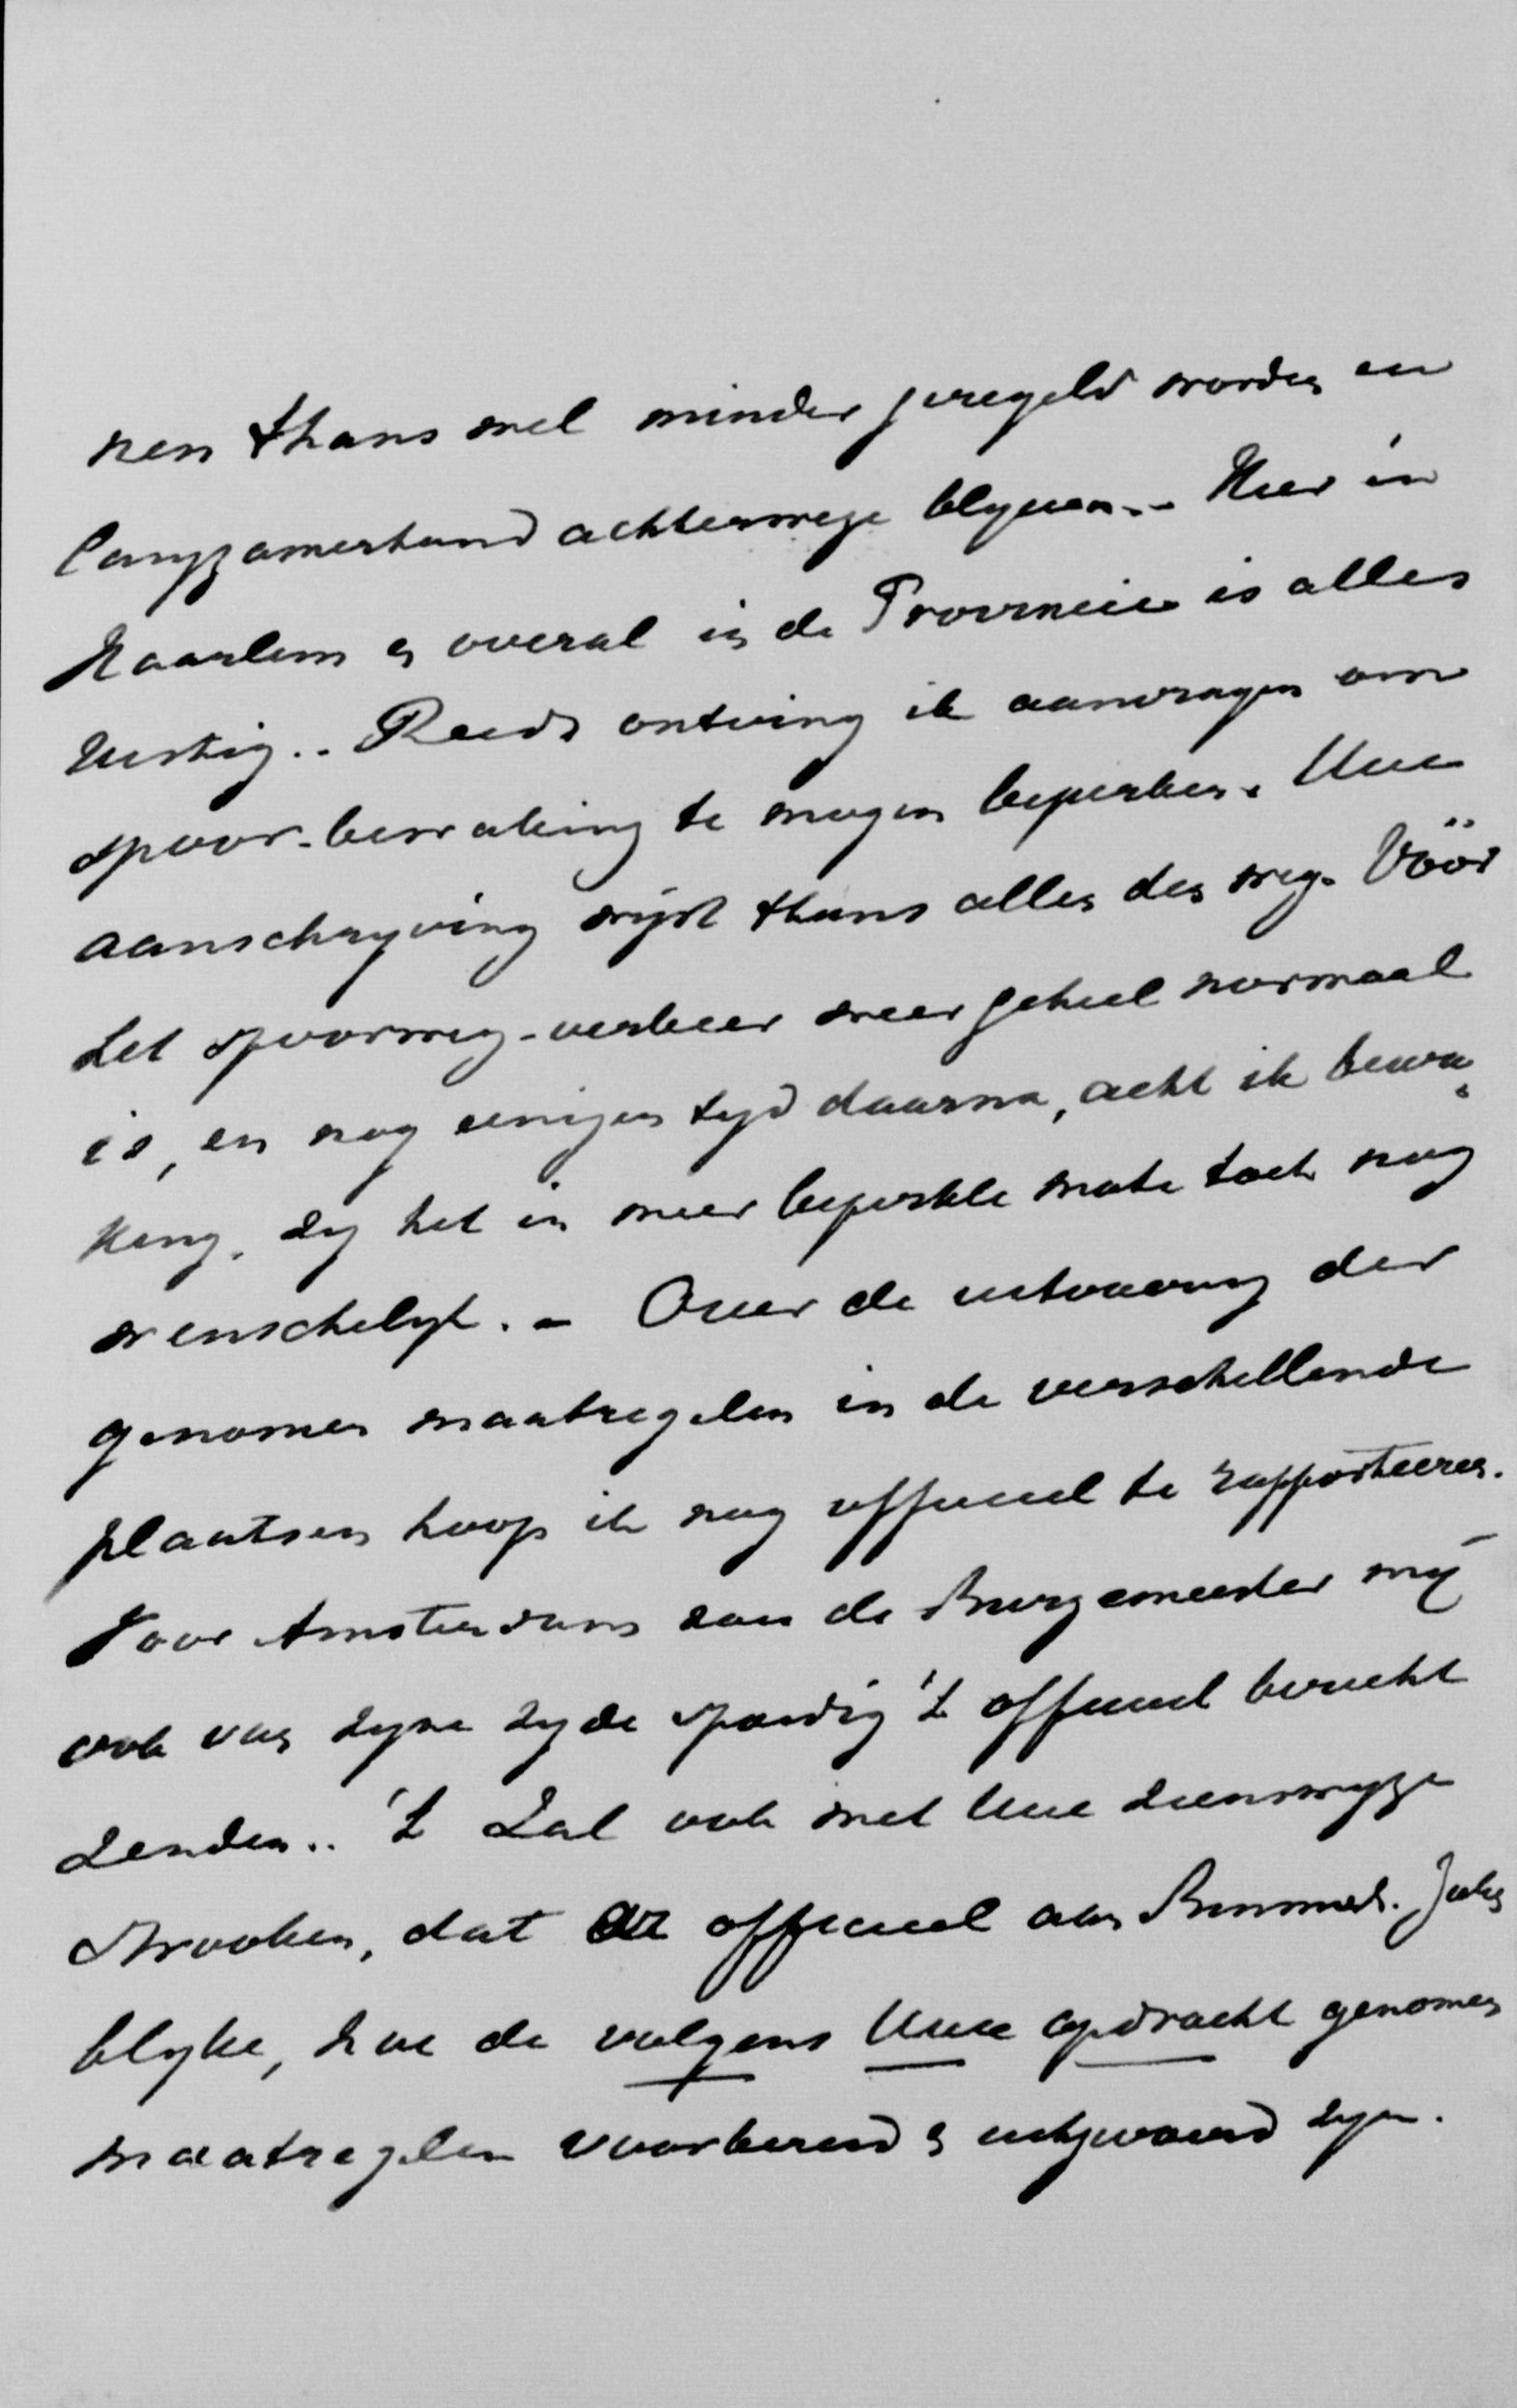 nen thans wel minder geregeld worden en
langzamerhand achterwege blyven.- Hier in
Haarlem en overal in de Provincie is alles
rustig.. Reeds ontving ik aanvragen om
spoor-bewaking te mogen beperken. Uwe
aanschryving wijst thans allen den weg. Vóór
het spoorweg-verkeer weer geheel normaal
is, en nog eenigen tyd daarna, acht ik bewa-
king, zy het in meer beperkte mate toch nog
wenschelyk. - Over de uitvoering der
genomen maatregelen in de verschillende
plaatsen hoop ik nog officieel te rapporteeren.
Voor Amsterdam zou de Burgemeester mij
ook van zyne zyde spoedig 't officieel bericht
zenden.. 't Zal ook met Uwe zienswyze
strooken, dat er officieel aan Binnenl. Zaken
blyke, hoe de volgens Uwe opdracht genomen
maatregelen voorbereid en uitgevoerd zyn.